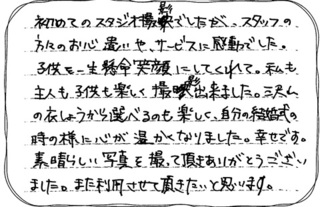 初めてのスタジオ撮影でしたが、スタッフの
方々のお心遣いや、サービスに感動でした。
子供を一生懸命笑顔にしてくれて。私も
主人も子供も楽しく撮影出来ました。たくさん
の衣しょうから選べるのも楽しく、自分の結婚式
の時の様に心が温かくなりました。幸せです。
素晴らしい写真を撮って頂きありがとうござい
ました。また利用させて頂きたいと思います。